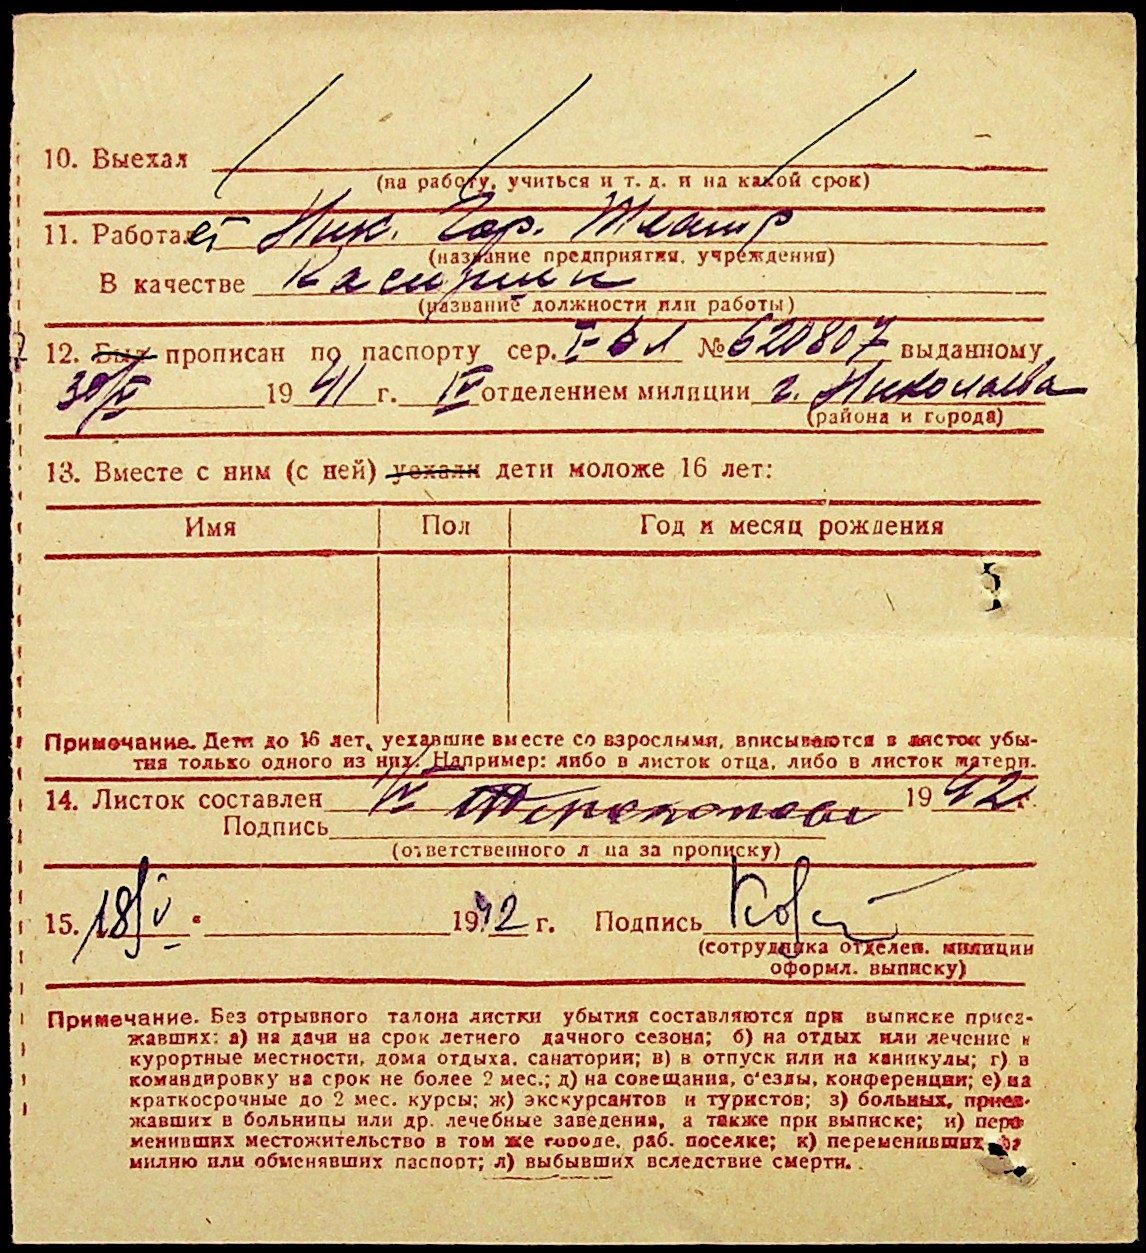 10. Выехал
(на работу, учиться и т. д. и на какой срок)
11. Работает Ник. Гор. Театр
(название предприятия, учреждения)
В качестве Касирши
(название должности или работы)
12. Был прописан по паспорту сер. № 620807 выданному
30/V 1941 г. IV отделением милиции г. Николаева
(района и города)
13. Вместе с ним (с ней) уехали дети моложе 16 лет:
Имя Пол Год и месяц рождения
Примечание. Дети до 16 лет, уехавшие вместе со взрослыми, вписываются в листок убы-
тия только одного из них. Например: либо в листок отца, либо в листок матери.
14. Листок составлен 1942 г.
Подпись
(ответственного лица за прописку)
15. 18/V 1942 г. Подпись
(сотрудника отделен. милиции
оформл. выписку)
Примечание. Без отрывного талона листки убытия составляются при выписке приез-
жавших: а) на дачи на срок летнего дачного сезона; б) на отдых или лечение в
курортные местности, дома отдыха, санатории; в) в отпуск или на каникулы; г) в
командировку на срок не более 2 мес.; д) на совещания, с'езды, конференции; е) на
краткосрочные до 2 мес. курсы; ж) экскурсантов и туристов; з) больных, приез-
жавших в больницы или др. лечебные заведения, а также при выписке; и) пере
менивших местожительство в том же городе, раб. поселке; к) переменивших фа
милию или обменявших паспорт; л) выбывших вследствие смерти.